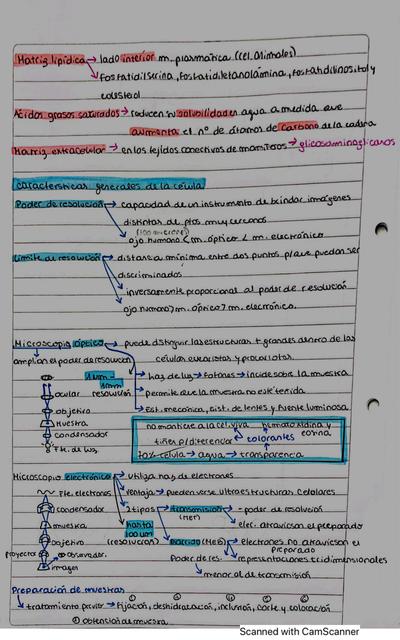 Matriz lipídica → lado interior m. plasmática (cel. animales)
fosfatidilserina, fosfatidiletanolamina, fosfatidilinositol y
colesterol
Ácidos grasos saturados → reducen su solubilidad en agua a medida que
aumenta el nº de átomos de carbono de la cadena
Matriz extracelular → en los tejidos conectivos de mamíferos → glicosaminoglicanos
Características generales de la célula
Poder de resolución → capacidad de un instrumento de brindar imágenes
distintas de ptos. muy cercanos
ojo humano < m. óptico < m. electrónico
Límite de resolución → distancia mínima entre dos puntos p/ que puedan ser
discriminados
inversamente proporcional al poder de resolución
ojo humano > m. óptico > m. electrónico.
Microscopio óptico → puede distinguir las estructuras + grandes dentro de las
amplían el poder de resolución células eucariotas y procariotas.
haz de luz → fotones → incide sobre la muestra
ocular resolución permite que la muestra no esté tenida
objetivo Sist. mecánica, sist. de lentes y fuente luminosa
muestra no mantiene a la cel. viva hematoxilina y
condensador tiñes p/ diferenciar colorantes eosina
Fte. de luz 70% célula → agua → transparencia
Microscopio electrónico → utiliza haz de electrones
Fte. electrones ventaja → pueden verse ultraestructuras celulares
condensador 2 tipos → transmisión → - poder de resolución
(MET)
muestra hasta elec. atraviesan el preparado
objetivo (resolución) Barrido (MEB) electrones no atraviesan el
preparado
proyector observador. Poder de res. representaciones tridimensionales
imagen menor al de transmisión
Preparación de muestras
tratamiento previo → fijación, deshidratación, inclusión, corte y coloración
① obtención de muestra
Scanned with CamScanner